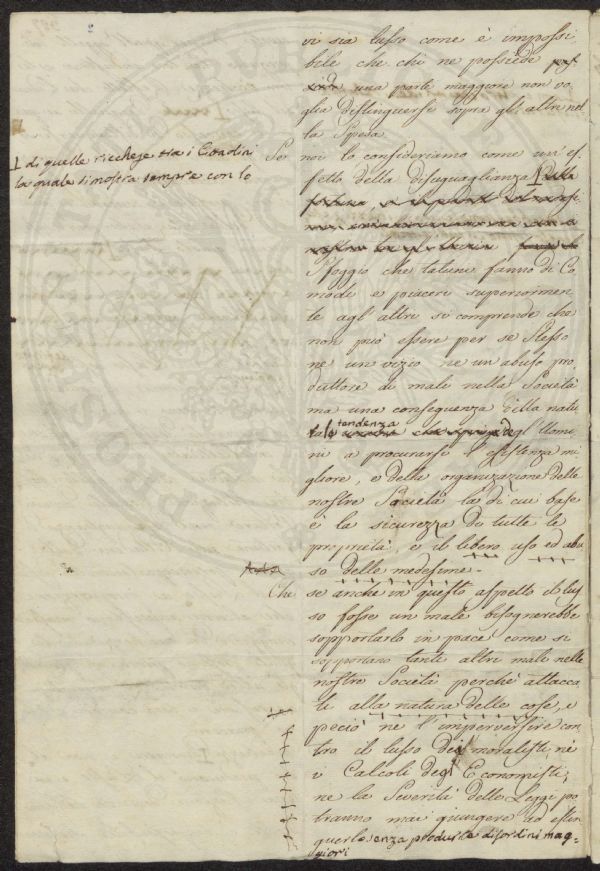 2
vi sia lusso come è impossi
bile che chi ne possiede
una parte maggiore non vo
glia distinguersi sopra gl'altri nel
la spesa.
⊥ di quelle ricchezze tra i Citadini
la quale si mostra sempre con lo
Se noi lo consideriamo come un'ef
fetto della disuguaglianza ⊥ della
Sfoggio che taluni fanno di Co
modi e piaceri superiormen
te agl'altri si comprende che
non può essere per se stesso
ne un vizio ne un abuso pro
duttore di male nella Società
ma una conseguenza della natu
rale tendenza degl'Uomi
ni a procurarsi l'esistenza mi
gliore, e della organizazione delle
nostre Società la di cui base
è la sicurezza di tutte le
proprietà, e il libero uso ed abu
so delle medesime.
Che se anche in questo aspetto il lus
so fosse un male bisognerebbe
sopportarlo in pace come si
sopportano tanti altri mali nelle
nostre Società perchè attacca
ti alla natura delle cose, e
perciò ne l'imperversire con
tro il lusso dei moralisti, ne
i Calcoli degl'Economisti,
ne la Severità delle Leggi po
tranno mai giungere ad estin
guerlo senza produrre disordini mag=
giori